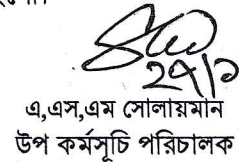 ২৭/১
এ,এস,এম সোলায়মান
উপ কর্মসূচি পরিচালক